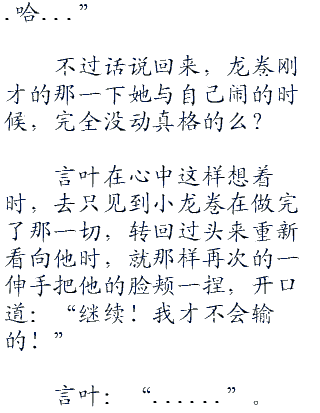 .哈...”
不过话说回来，龙卷刚
才的那一下她与自己闹的时
候，完全没动真格的么？
言叶在心中这样想着
时，去只见到小龙卷在做完
了那一切，转回过头来重新
看向他时，就那样再次的一
伸手把他的脸颊一捏，开口
道：“继续！我才不会输
的！”
言叶：“......”。